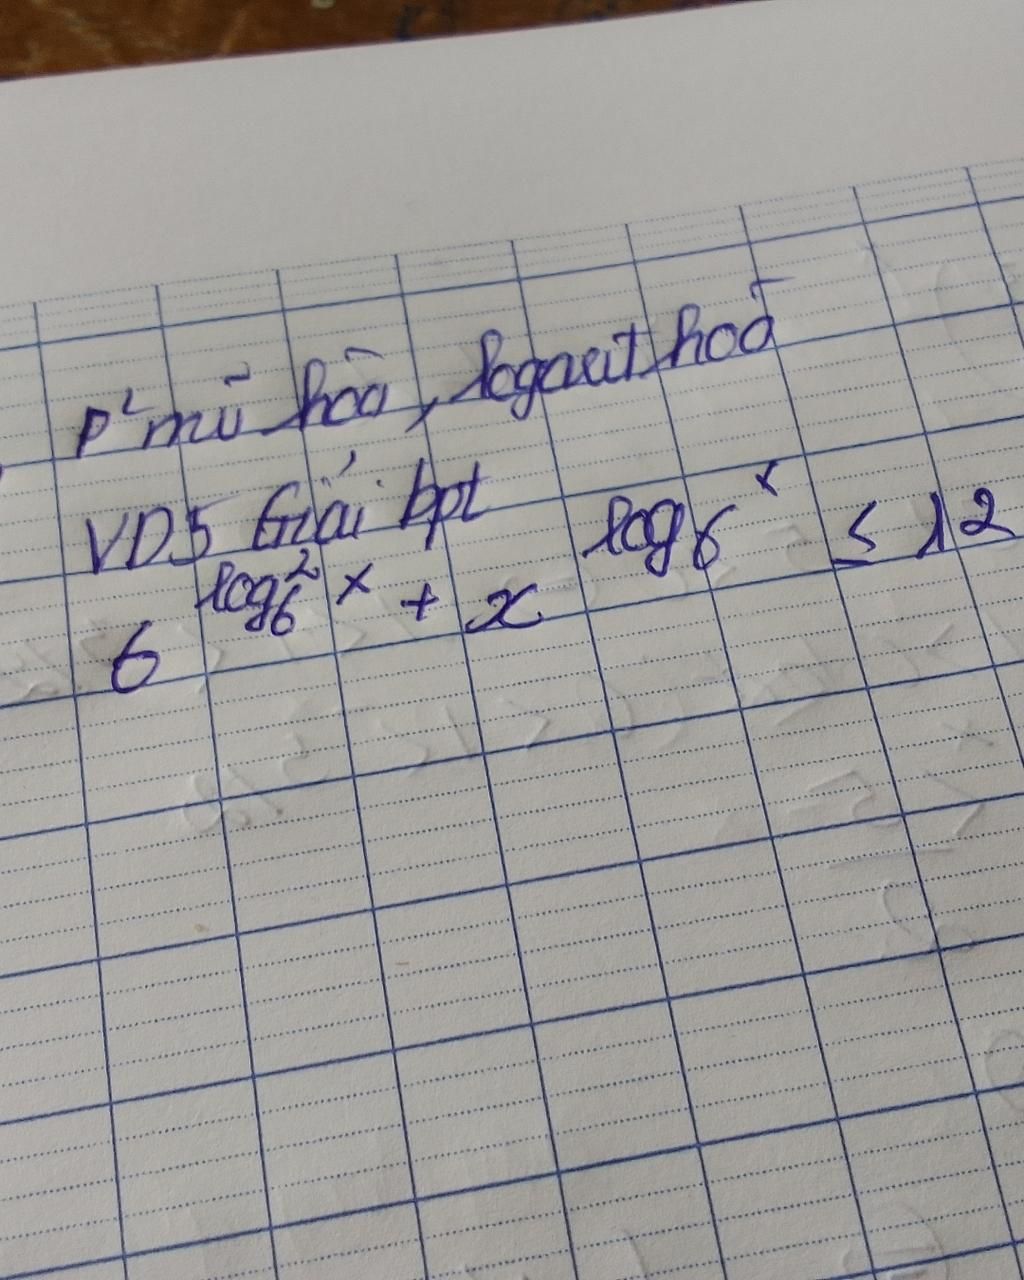 P² mũ hoá, logarit hoá
VD5 Giải bpt
6^{log₆² x} + x^{log₆ x} ≤ 12